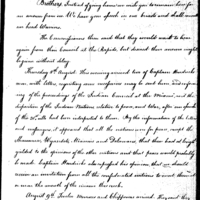 Brothers, Instead of going home we wish you to remain here for
an answer from us. We have your speech on our breasts and shall consult
our head Warriors.
The Commissioners then said that they would wait to hear
again from their Council at the Rapids, but desired their answer might
be given without delay.
Thursday 8th August. This morning arrived two of Captain Hendricks
men with letters, reporting
of the proceedings of the Indian Council at the Miami, and
disposition of the Indian Nations relative to peace, and
the 30th ult had been interpreted to them. By the information of the letters
and messengers, it appeared that all the nations were for peace, except the
Shawanese, Wyandots, Miamis and Delawares, that these had at length
yielded to the opinion of the other nations and that peace would probably
be made. Captain Hendricks also expressed his opinion, that we should
receive an invitation from all the confederated nations to meet them at
or near the mouth of the
August 9th Twelve Munsees and Chippewas arrived. They said they